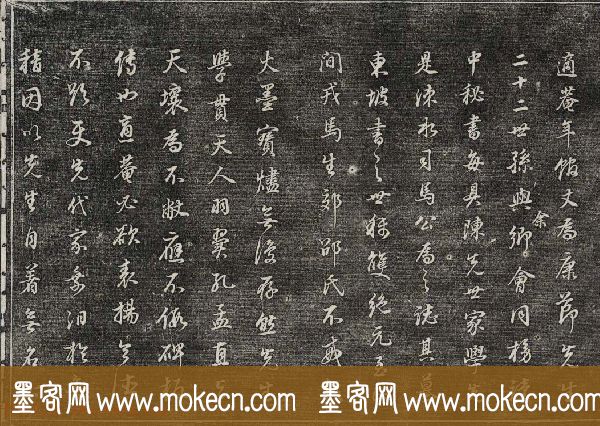 適菴年館丈為康節先生
二十二世孫與卿會同榜
余
中秘書每具陳先世家學
是涑水司馬公為之誌其墓
東坡書之世稱雙絕元至
間戎馬生郊邵氏不
火墨寶燼無復存然先生
學貫天人羽翼孔孟直
天壤為不敝應不假碑
傳而適菴必欲表揚
不路更先代家乘泪於
稽因以先生自著無名
墨客网 www.mokecn.com 墨客网 www.mokecn.com